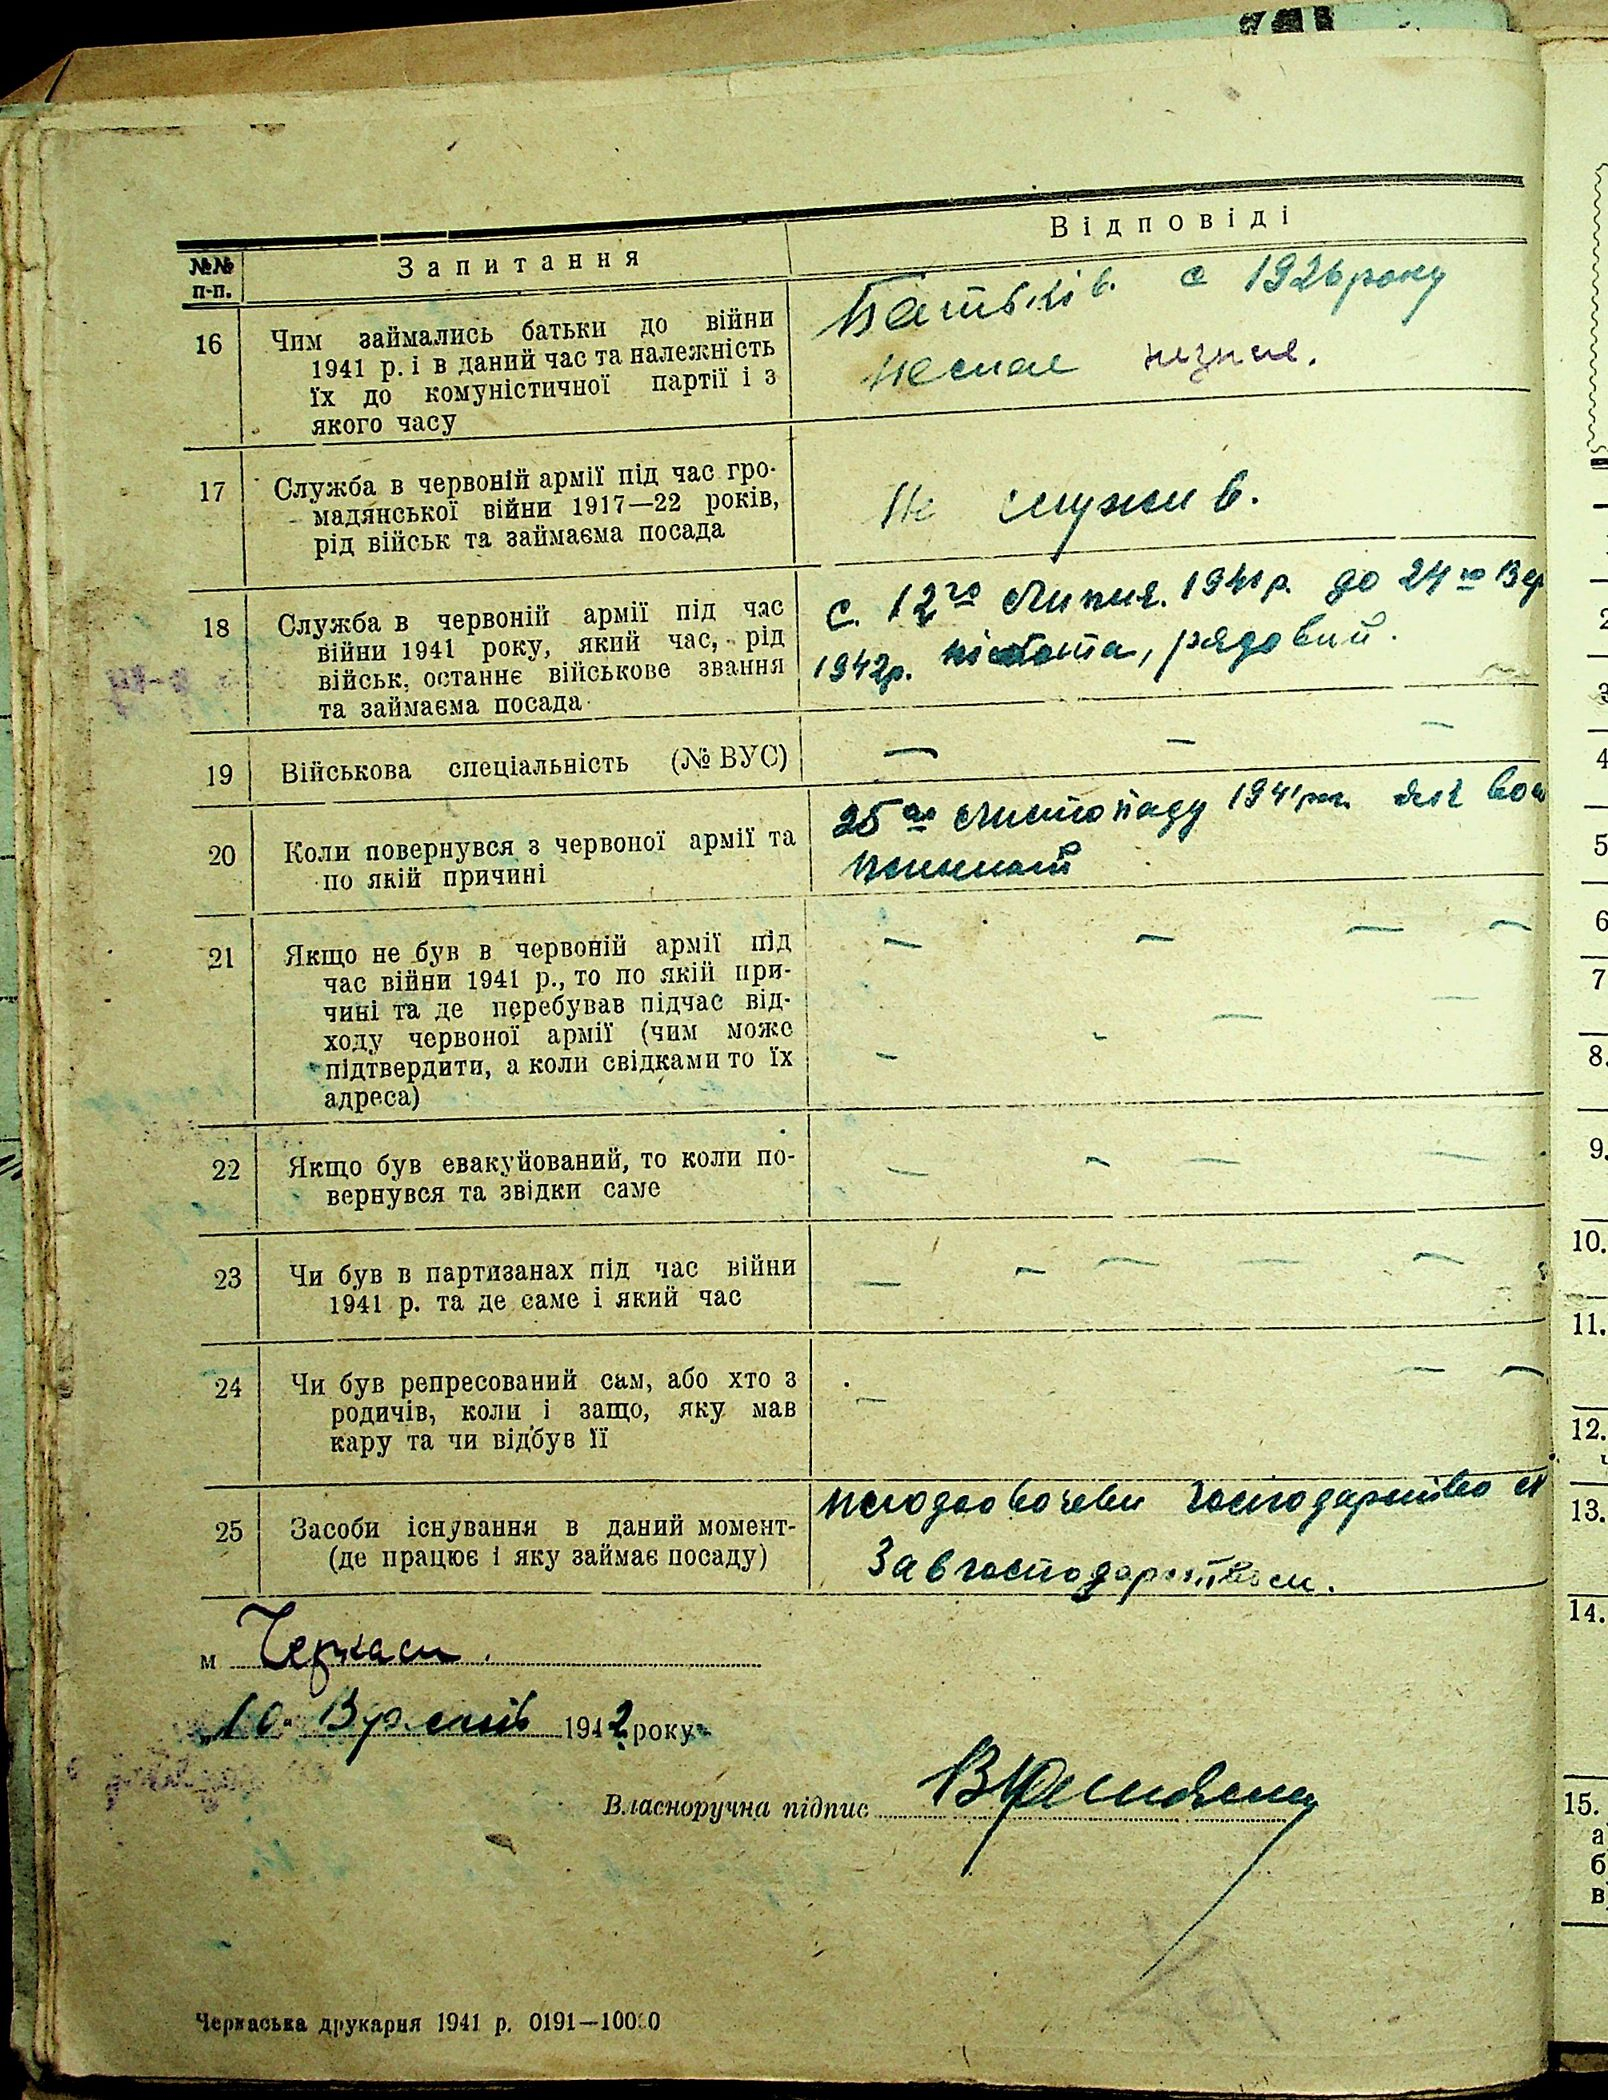 №№ п-п.
Запитання
Відповіді
16
Чим займались батьки до війни
1941 р. і в даний час та належність
їх до комуністичної партії і з
якого часу
Батьків. с 1926 року
немає
17
Служба в червоній армії під час гро-
мадянської війни 1917—22 років,
рід військ та займаєма посада
Не служив.
18
Служба в червоній армії під час
війни 1941 року, який час, рід
військ, останнє військове звання
та займаєма посада
с. 12го Липня. 1941р. до 24го Вер
1942р. піхота, рядовий.
19
Військова спеціальність (№ ВУС)
— — —
20
Коли повернувся з червоної армії та
по якій причині
25го Листопаду 1941 як
21
Якщо не був в червоній армії під
час війни 1941 р., то по якій при-
чині та де перебував підчас від-
ходу червоної армії (чим може
підтвердити, а коли свідками то їх
адреса)
— — — —
— — — —
22
Якщо був евакуйований, то коли по-
вернувся та звідки саме
— — — — —
23
Чи був в партизанах під час війни
1941 р. та де саме і який час
— — — — —
24
Чи був репресований сам, або хто з
родичів, коли і защо, яку мав
кару та чи відбув її
— — —
25
Засоби існування в даний момент-
(де працює і яку займає посаду)
господарство
Завгосподарством.
м Черкаси.
„10“ Вересня 1942 року
Власноручна підпис
Черкаська друкарня 1941 р. 0191—10000
2
3
4
5
6
7
8.
9.
10.
11.
12.
13.
14.
15.
а
б
в